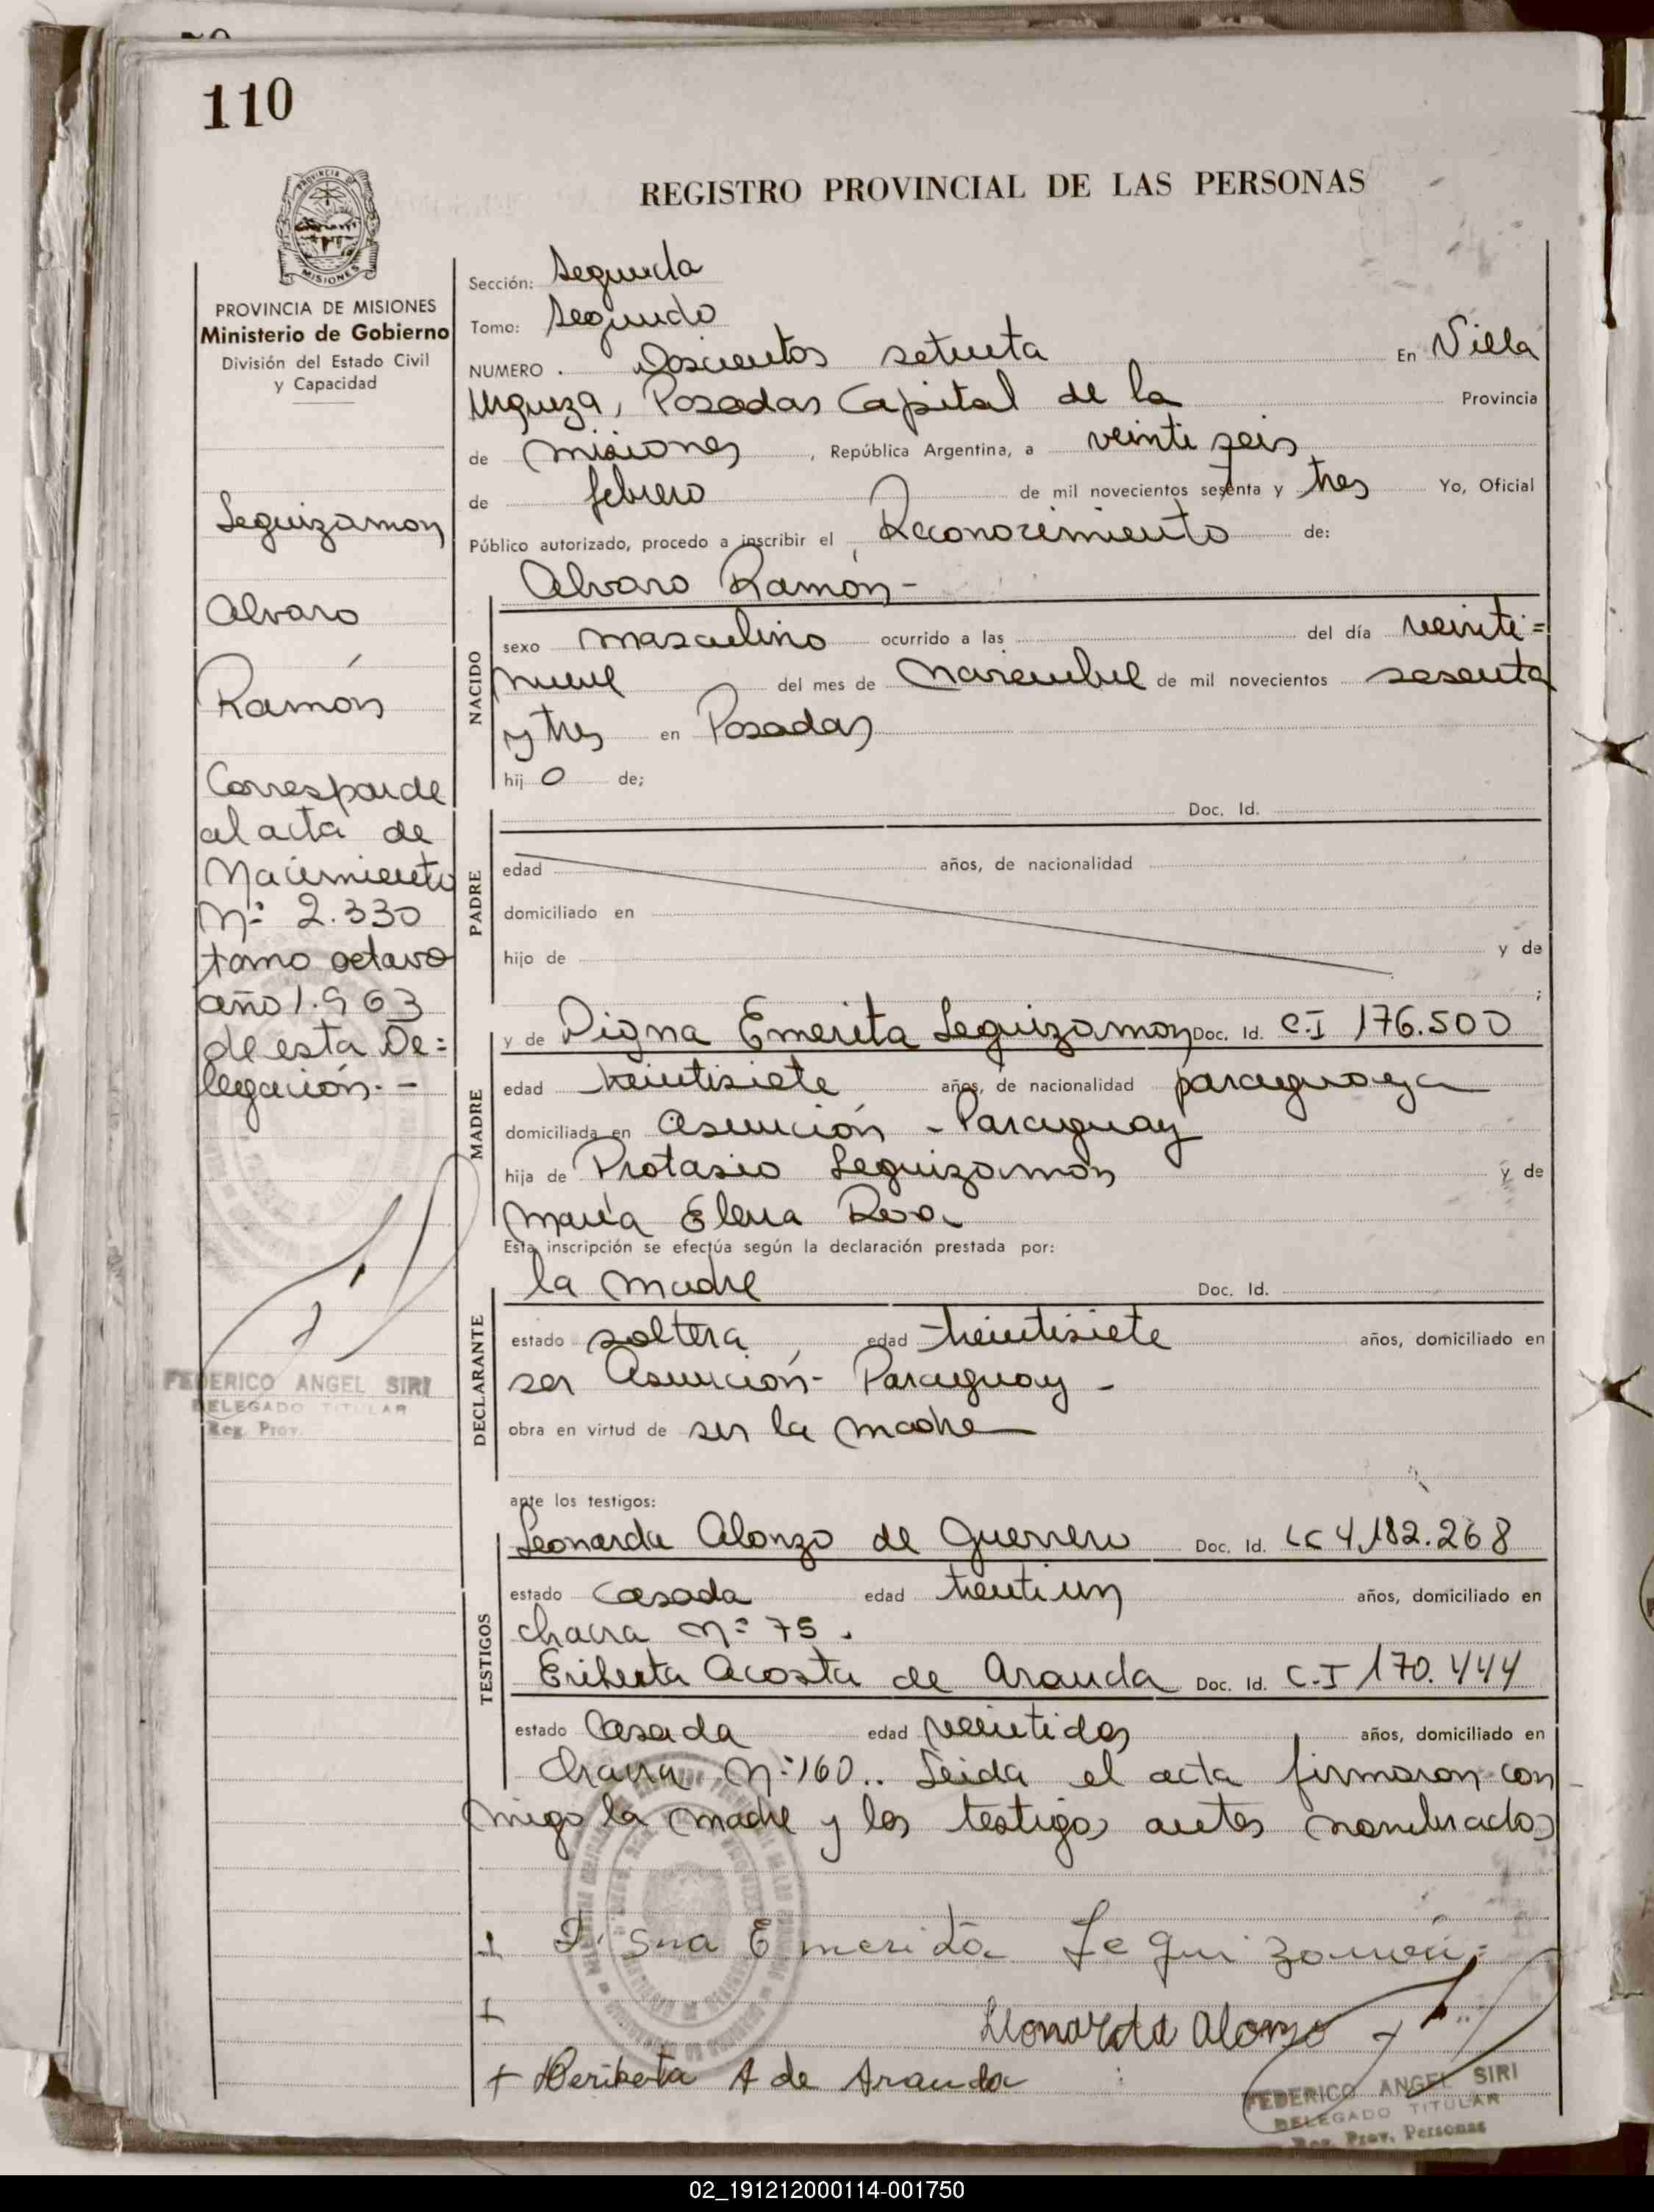 110
REGISTRO PROVINCIAL DE LAS PERSONAS
PROVINCIA DE MISIONES
MISIONES
PROVINCIA DE MISIONES
Ministerio de Gobierno
División del Estado Civil
y Capacidad
Leguizamon
Alvaro
Ramón
Corresponde
al acta de
Nacimiento
Nº 2.330
tomo octavo
año 1.963
de esta De=
legación.-
FEDERICO ANGEL SIRI
DELEGADO TITULAR
Reg. Prov.
Sección: Segunda
Tomo: Segundo
NUMERO . Doscientos setenta En Villa
Urquiza, Posadas Capital de la Provincia
de Misiones, República Argentina, a veinti seis
de febrero de mil novecientos sesenta y tres Yo, Oficial
Público autorizado, procedo a inscribir el Reconocimiento de:
Alvaro Ramón-
NACIDO
sexo masculino ocurrido a las del día veinti=
nueve del mes de Noviembre de mil novecientos sesenta
y tres en Posadas
hij o de;
Doc. Id.
PADRE
edad años, de nacionalidad
domiciliado en
hijo de y de
;
MADRE
y de Digna Emerita Leguizamon Doc. Id. C.I 176.500
edad treintisiete años, de nacionalidad paraguaya
domiciliada en Asunción - Paraguay
hija de Protasio Leguizamón y de
María Elena Roa
Esta inscripción se efectúa según la declaración prestada por:
DECLARANTE
la madre Doc. Id.
estado soltera edad treintisiete años, domiciliado en
ser Asunción- Paraguay -
obra en virtud de ser la madre
ante los testigos:
TESTIGOS
Leonarda Alonzo de Guerrero Doc. Id. LC 4.182.268
estado casada edad treintiun años, domiciliado en
chacra Nº 75.
Eriberta Acosta de Aranda Doc. Id. C.I 170.444
estado casada edad veintidos años, domiciliado en
chacra Nº 160.. Leida el acta firmaron con
migo la madre y los testigos antes nombrados
Digna Emerita Leguizamón
Leonarda Alonzo
+ Heriberta A de Aranda
FEDERICO ANGEL SIRI
DELEGADO TITULAR
Reg. Prov. Personas
02_191212000114-001750